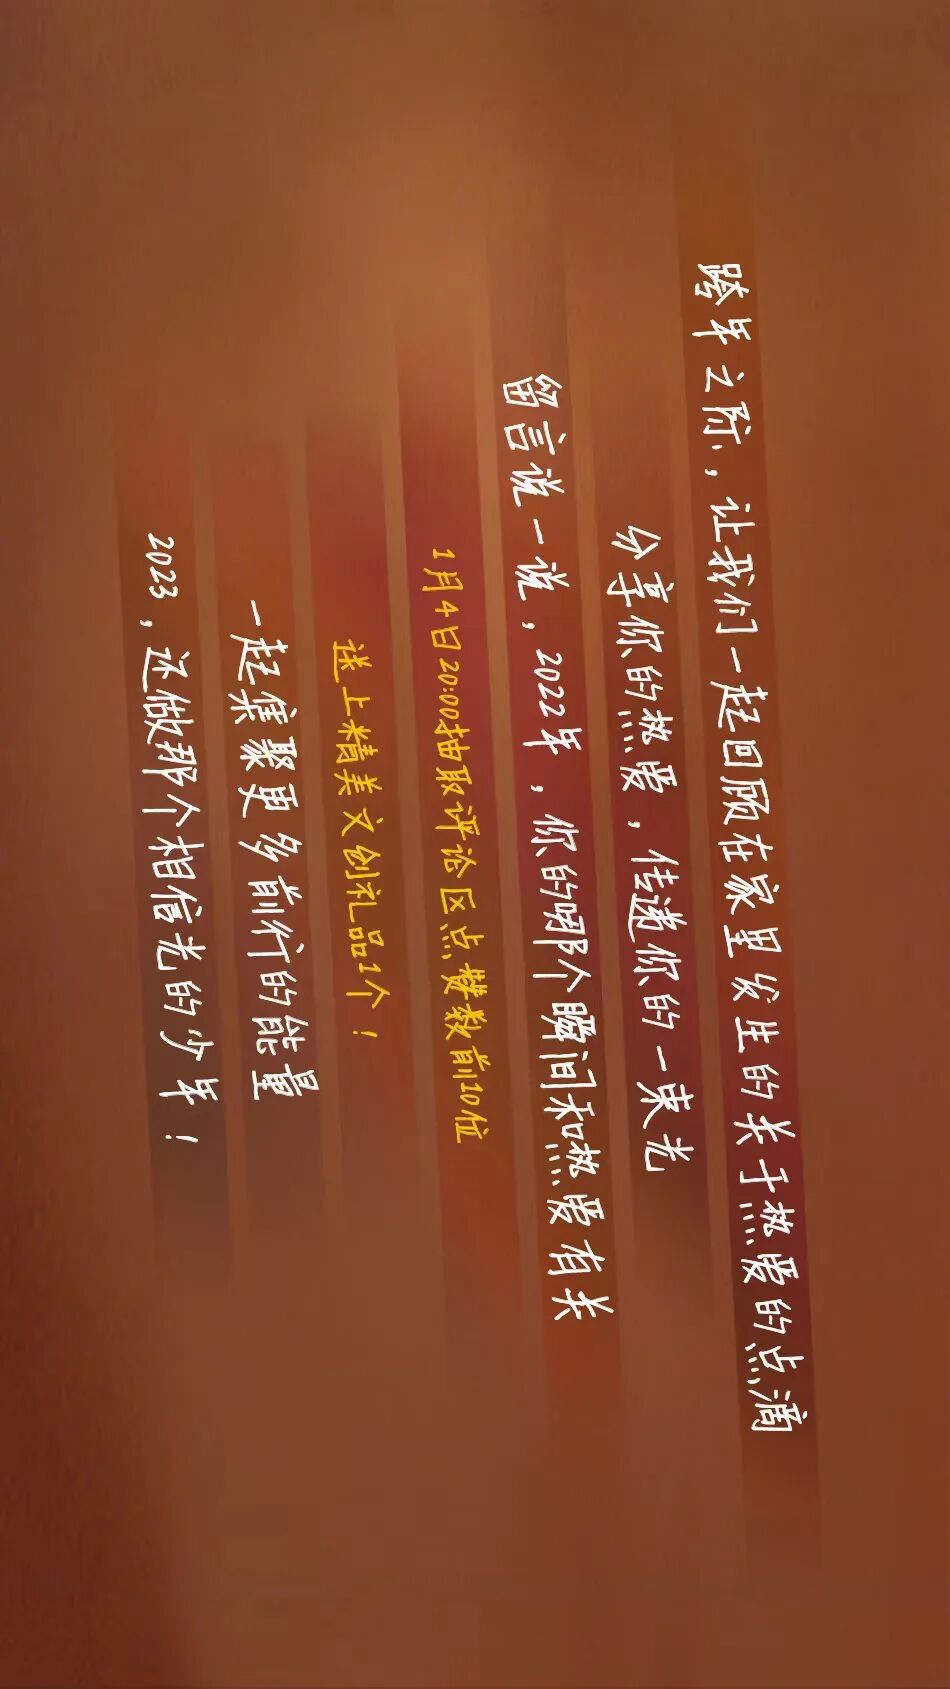 跨年之际，让我们一起回顾在家里发生的关于热爱的点滴
分享你的热爱，传递你的一束光
留言说一说，2022年，你的哪个瞬间和热爱有关
1月4日20:00抽取评论区点赞数前10位
送上精美文创礼品1个！
一起集聚更多前行的能量
2023，还做那个相信光的少年！